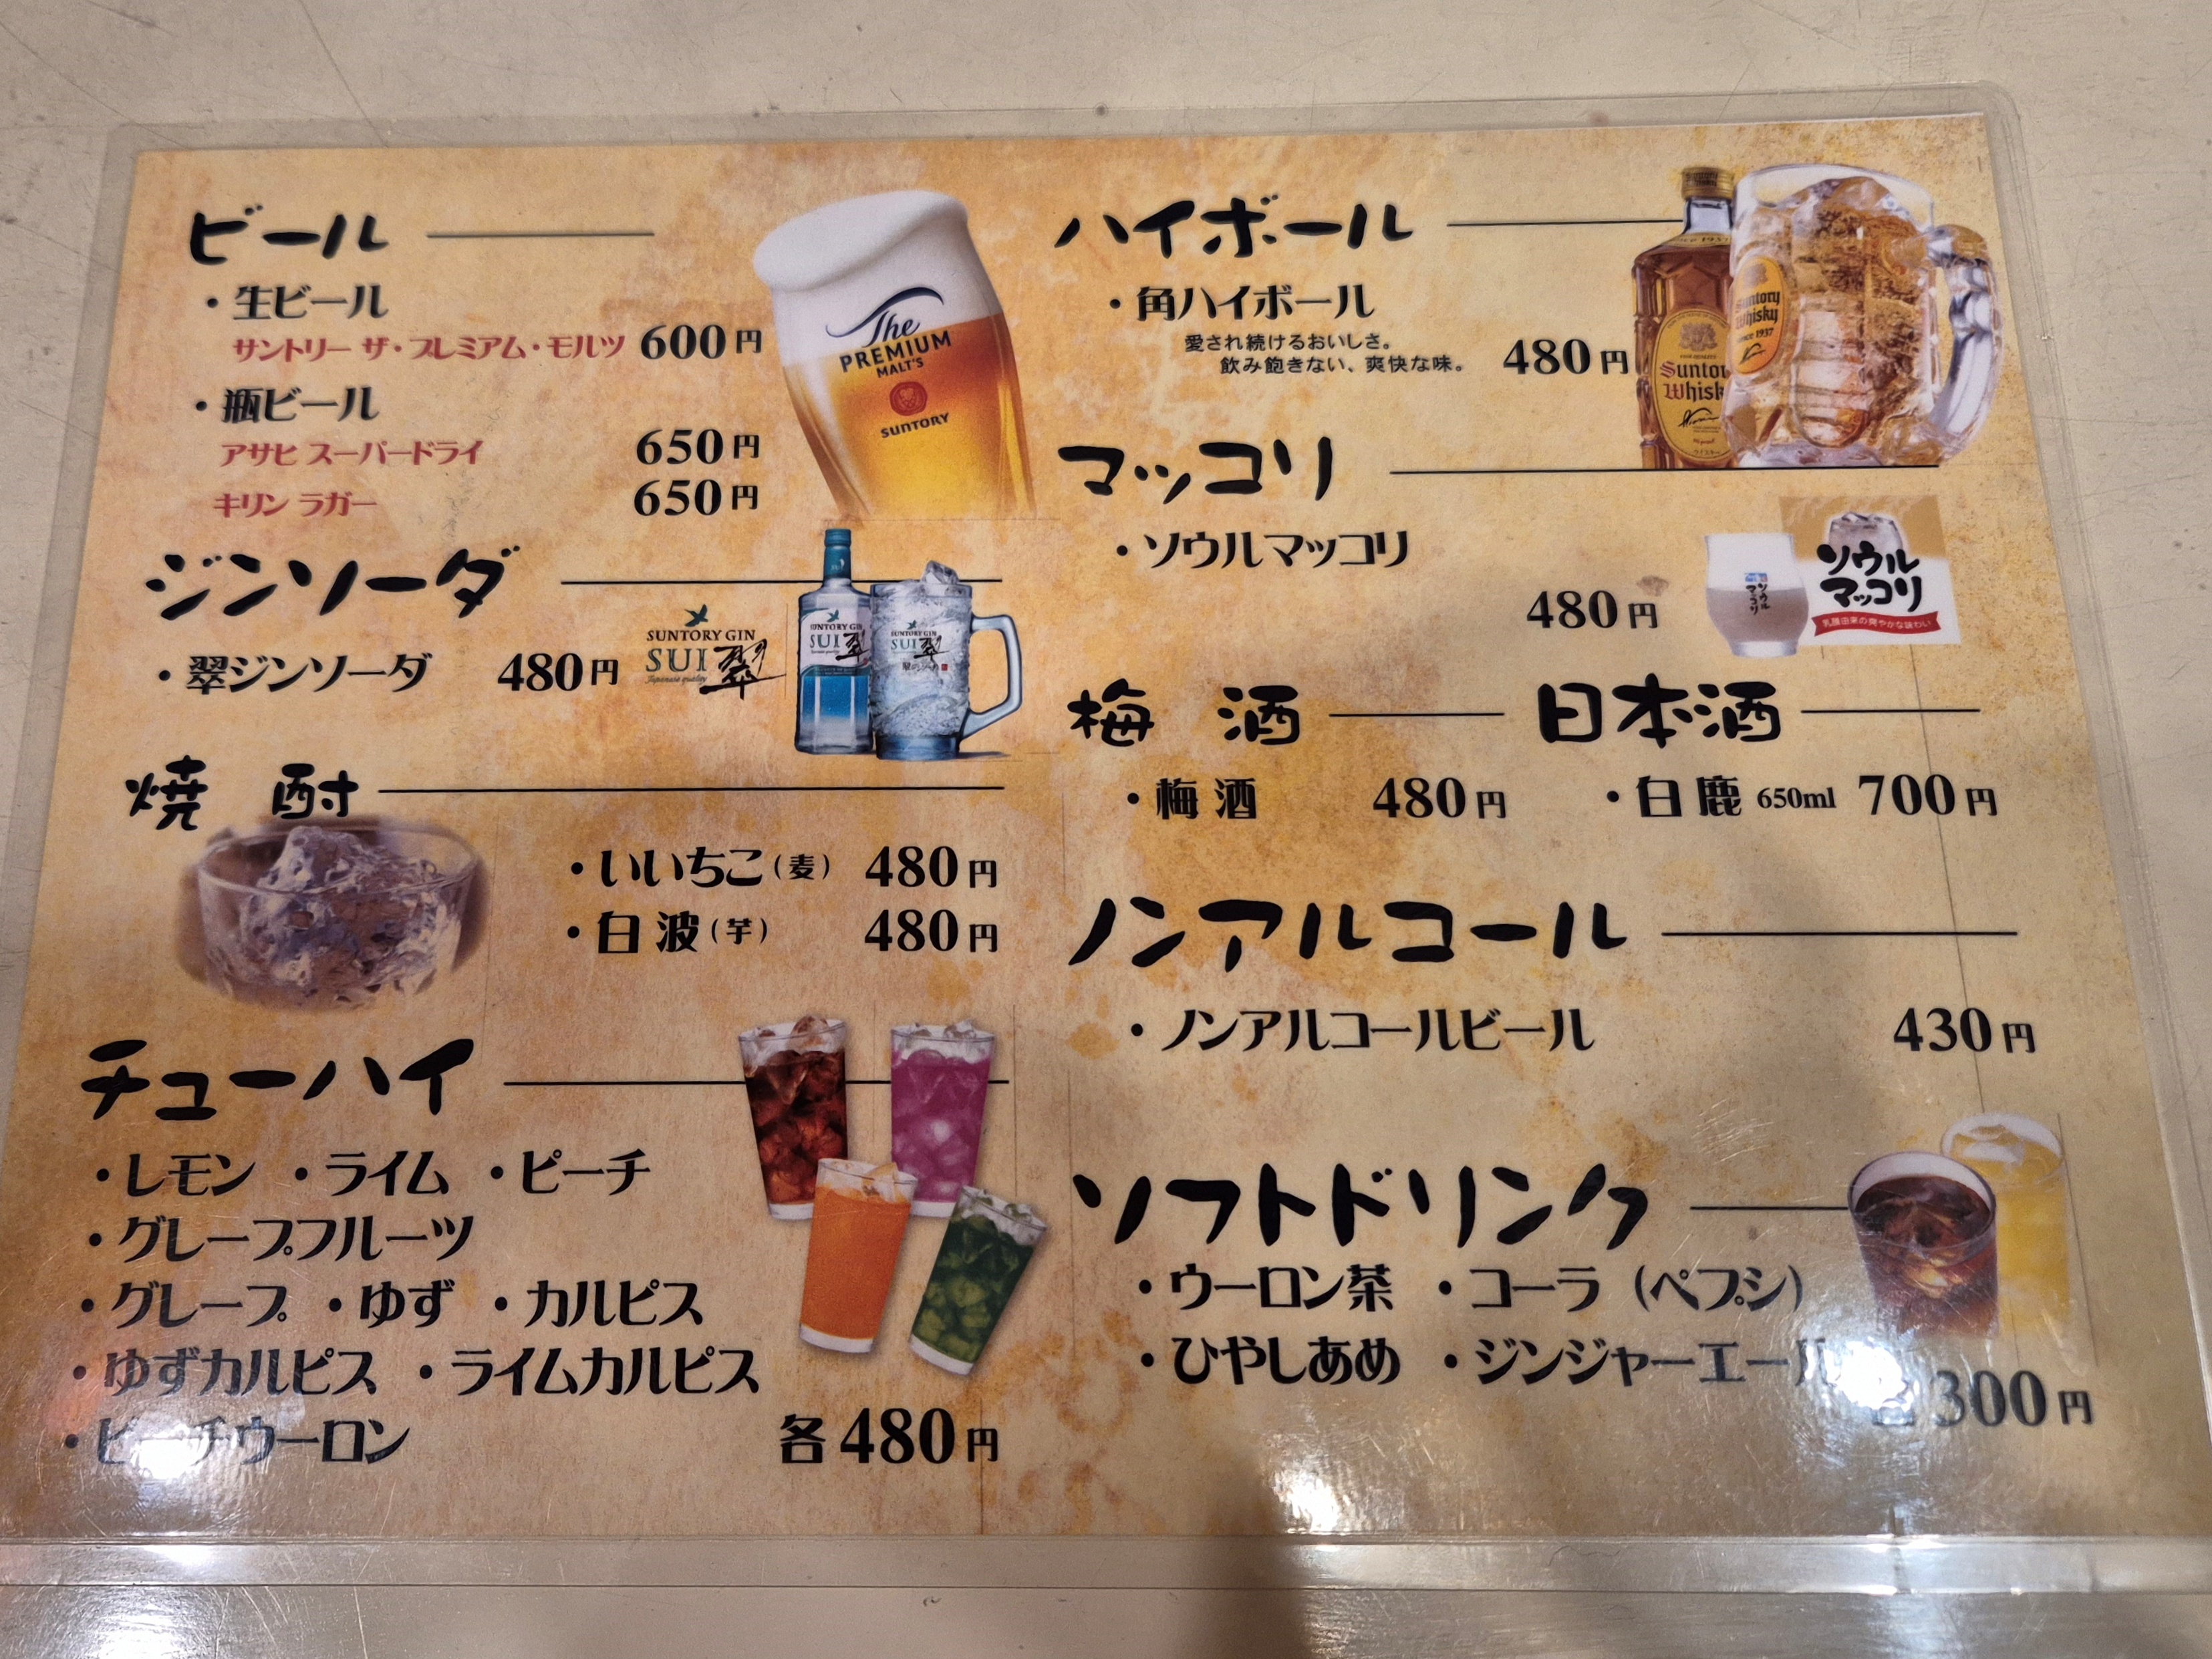 ビール
・生ビール
サントリー ザ・プレミアム・モルツ 600円
・瓶ビール
アサヒ スーパードライ 650円
キリン ラガー 650円
The
PREMIUM
MALT'S
SUNTORY
ジンソーダ
・翠ジンソーダ 480円
SUNTORY GIN
SUI 翠
Japanese quality
SUNTORY GIN
SUI 翠
SUNTORY GIN
SUI 翠
焼 酎
・いいちこ(麦) 480円
・白 波(芋) 480円
チューハイ
・レモン ・ライム ・ピーチ
・グレープフルーツ
・グレープ ・ゆず ・カルピス
・ゆずカルピス ・ライムカルピス
・ピーチウーロン 各480円
ハイボール
・角ハイボール
愛され続けるおいしさ。
飲み飽きない、爽快な味。 480円
Suntory
Whisky
since 1937
Suntory
Whisky
マッコリ
・ソウルマッコリ
480円
ソウル
マッコリ
ソウル
マッコリ
乳酸由来の爽やかな味わい
梅 酒
・梅 酒 480円
日本酒
・白 鹿 650ml 700円
ノンアルコール
・ノンアルコールビール 430円
ソフトドリンク
・ウーロン茶 ・コーラ (ペプシ)
・ひやしあめ ・ジンジャーエール
300円